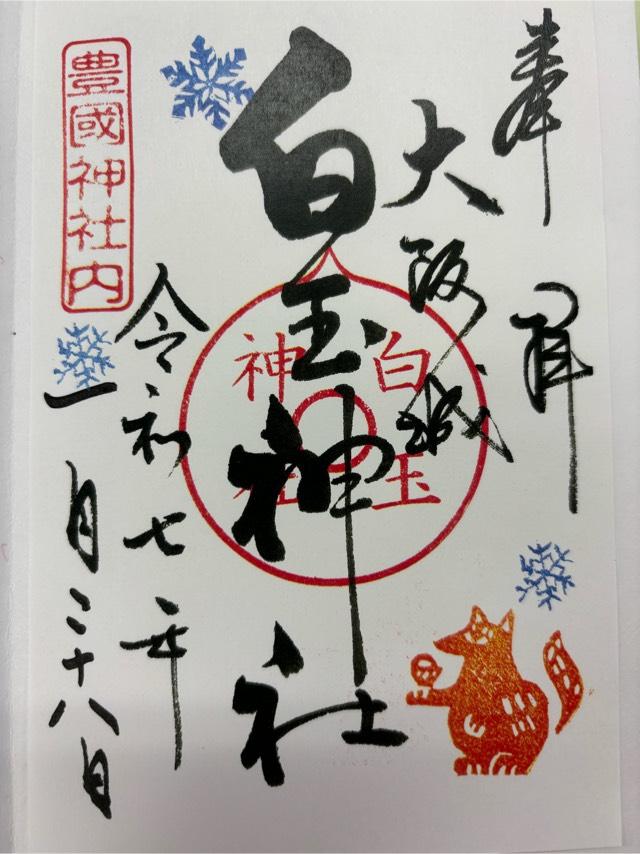 奉拝
大阪城
白玉神社
白玉
神社
令和七年
一月二十八日
豊國神社内